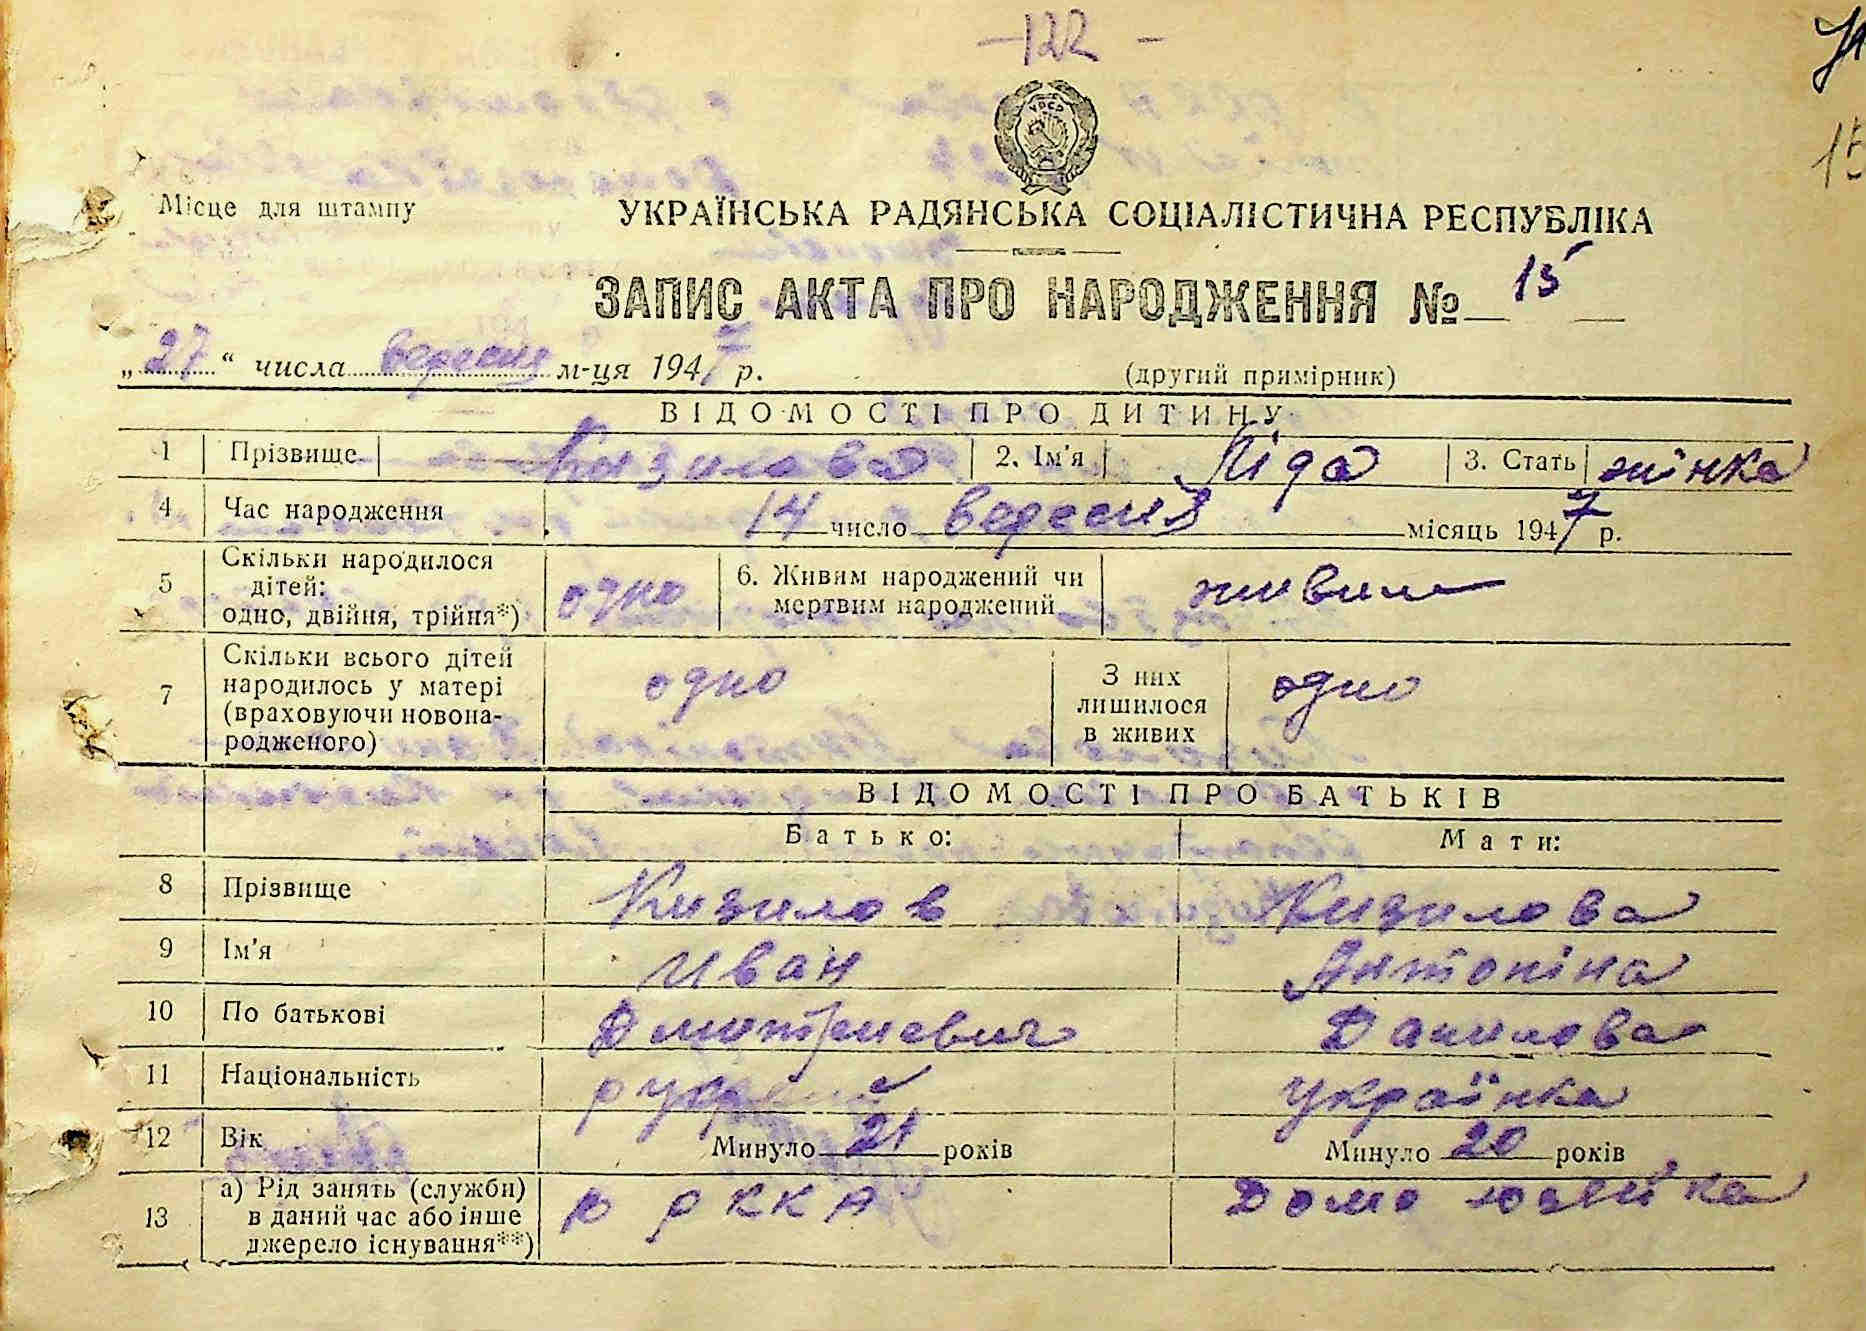 -122-
УРСР
15
Місце для штампу
УКРАЇНСЬКА РАДЯНСЬКА СОЦІАЛІСТИЧНА РЕСПУБЛІКА
ЗАПИС АКТА ПРО НАРОДЖЕННЯ № 15
„27“ числа вересня м-ця 1947 р. (другий примірник)
ВІДОМОСТІ ПРО ДИТИНУ
1 Прізвище Кизилова 2. Ім'я Ліда 3. Стать жінка
4 Час народження 14 число вересня місяць 1947 р.
5 Скільки народилося дітей: одно, двійня, трійня*) одно 6. Живим народжений чи мертвим народжений живим
7 Скільки всього дітей народилось у матері (враховуючи новонародженого) одно З них лишилося в живих одно
ВІДОМОСТІ ПРО БАТЬКІВ
Батько: Мати:
8 Прізвище Кизилов Кизилова
9 Ім'я Иван Антоніна
10 По батькові Дмитриевич Данилова
11 Національність українка
12 Вік Минуло 21 років Минуло 20 років
13 а) Рід занять (служби) в даний час або інше джерело існування**) РККА Домо